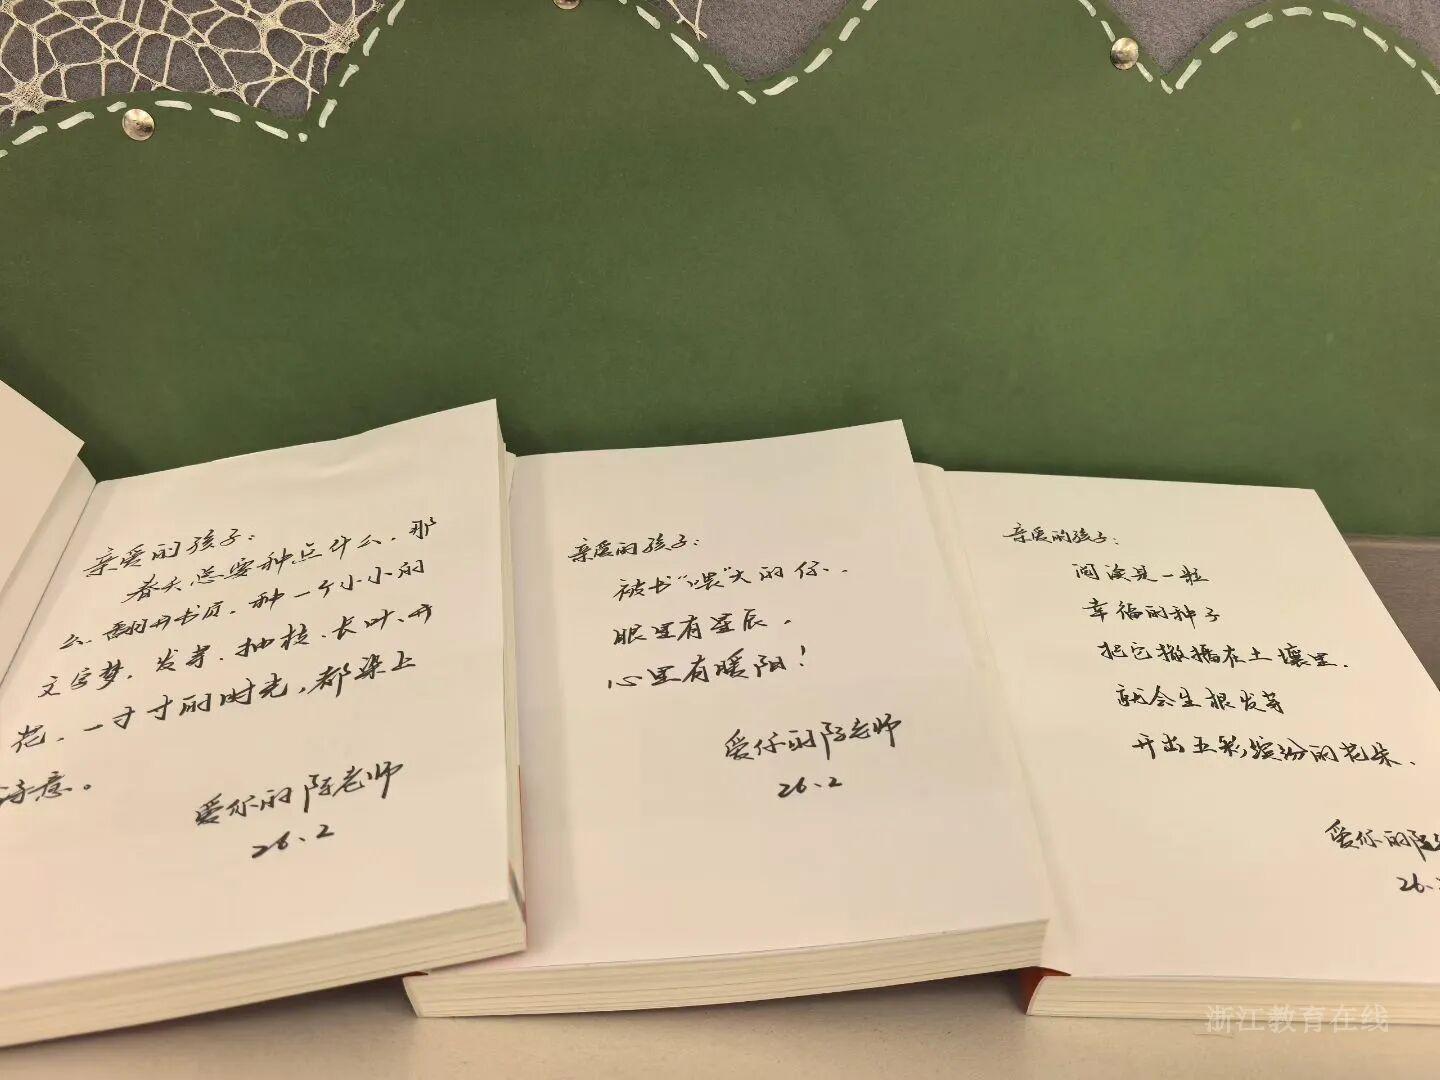 亲爱的孩子：
春天总要种点什么，那
么，翻开书页，种一个小小的
文字梦，发芽、抽枝、长叶、开
花，一寸寸的时光，都染上
诗意。
爱你的陈老师
26.2
亲爱的孩子：
被书“喂”大的你..
眼里有星辰，
心里有暖阳！
爱你的陈老师
26.2
亲爱的孩子：
阅读是一粒
幸福的种子
把它撒播在土壤里.
就会生根发芽
开出五彩缤纷的花朵.
爱你的陈
26.
浙江教育在线